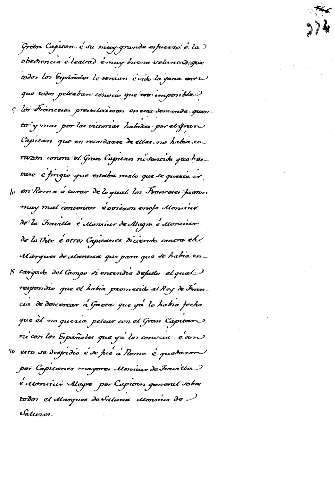 374
Gran Capitan é su muy grande esfuerzo é la
obediencia é lealtad é muy buena voluntad que
todos los Españoles le tenian é vido la gana con
que todos peleaban conocio que era imposible
los Franceses prevalecieran en esta demanda quan
to y mas por las victorias habidas por el Gran
Capitan que en
razon contra el Gran Capitan ni
é fingio que estaba malo que se queria ir
10 en Roma á curar de lo qual los Franceses fueron
muy mal contentos é
de la Tramulla é Monsiur de Alegre é Monsiur
de la Uter é otros Capitanes diciendo contra el
Marques de Mantua que para que se habia en
15 cargado del Campo si
respondio que el habia prometido al Rey de Fran
cia de descercar á Gaeta que ya lo habia fecho
que él no queria pelear con el Gran Capitan
ni con los Españoles que ya los conocia é con
20 esto se despidio é se fué á Roma é quedaron
por Capitanes mayores Monsiur de Tramulla
é Monsiur Alegre por Capitan general sobre
todos el Marques de Saluza Monsiur de
Saluces.